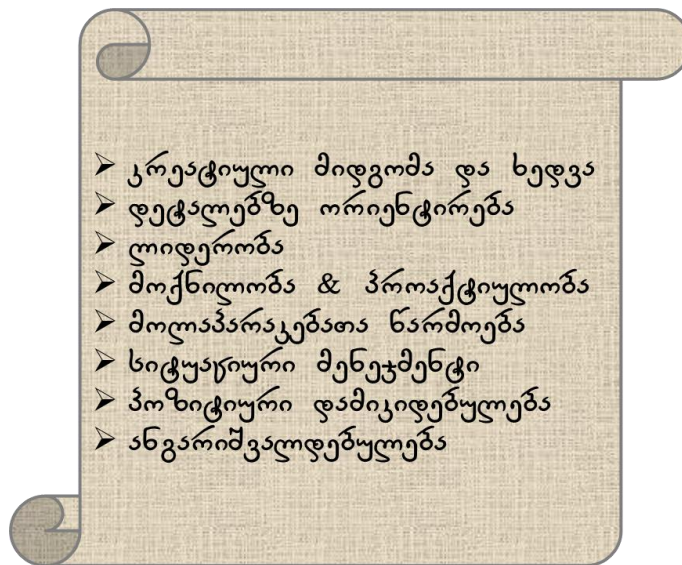 ➢ კრეატიული მიდგომა და ხედვა
➢ დეტალებზე ორიენტირება
➢ ლიდერობა
➢ მოქნილობა & პროაქტიულობა
➢ მოლაპარაკებათა წარმოება
➢ სიტუაციური მენეჯმენტი
➢ პოზიტიური დამიკიდებულება
➢ ანგარიშვალდებულება